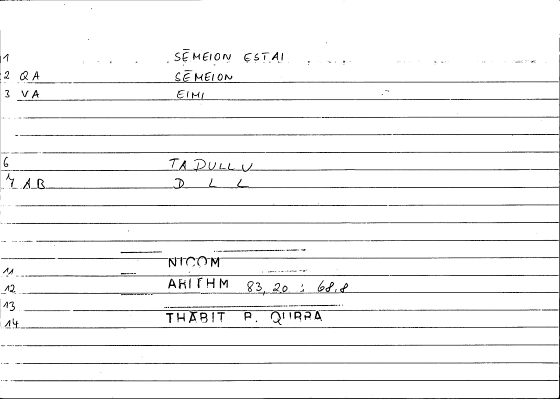 1 SĒMEION ESTAI
2 QA SĒMEION
3 VA EIMI
6 TADULLU
7 AB D L L
11 NICOM
12 ARITHM 83,20 : 68.8
13
14 THABIT B. QURRA